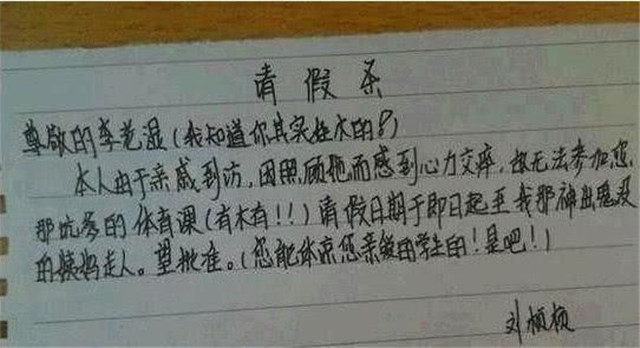 请假条
尊敬的李老湿(我知道你其实姓木的?)
本人由于亲戚到访,因照顾她而感到心力交瘁,故无法参加您
那坑爹的体育课(有木有!!)请假日期于即日起至我那神出鬼没
的姨妈走人。望批准。(您能体谅您亲爱的学生的!是吧!)
刘桢桢